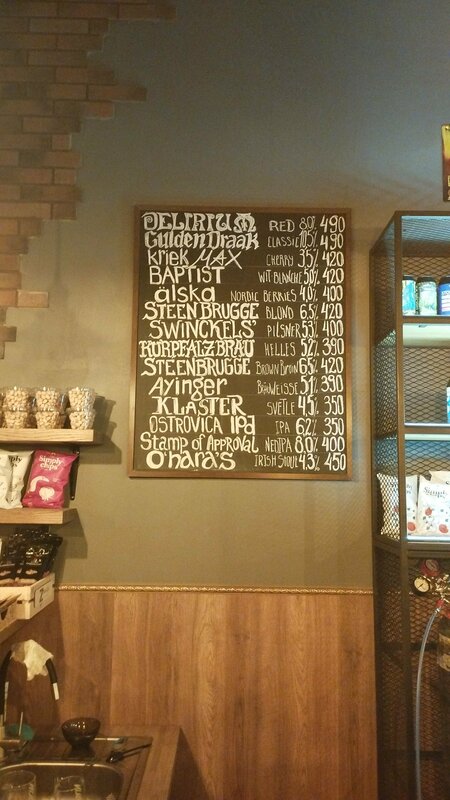 DELIRIUM RED 8.0% 490
Gulden Draak CLASSIC 10.5% 490
kriek MAX CHERRY 3.5% 420
BAPTIST WIT BLANCHE 5.0% 420
älska NORDIC BERRIES 4.0% 400
STEENBRUGGE BLOND 6.5% 420
SWINCKELS' PILSNER 5.3% 400
KURPFALZBRÄU HELLES 5.2% 390
STEENBRUGGE BROWN BRUIN 6.5% 420
Ayinger BRÄUWEISSE 5.1% 390
KLASTER SVETLE 4.5% 350
OSTROVICA IPA IPA 6.2% 350
Stamp of Approval NEIPA 8.0% 400
O'hara's IRISH STOUT 4.3% 450
Simply chips
Simply